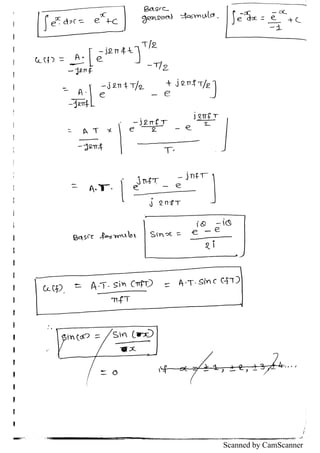 ∫e^x dx = e^x + c
Basic general formula.
∫e^-x dx = e^-x / -1 + c
G(f) = A. / -j2πf [ e^-j2πft ] T/2 -T/2
= A. / -j2πf [ e^-j2πfT/2 - e^+j2πfT/2 ]
= A T / -j2πf x [ e^-j2πfT/2 - e^j2πfT/2 / T. ]
= A.T. [ e^jπfT - e^-jπfT / j2πfT ]
Basic formula Sin x = e^iθ - e^-iθ / 2i
G(f) = A.T. sin(πfT) / πfT = A.T. sinc(fT)
∴ Sinc(x) = Sin(πx) / πx
= 0 if x = ±1, ±2, ±3, ±4....
Scanned by CamScanner